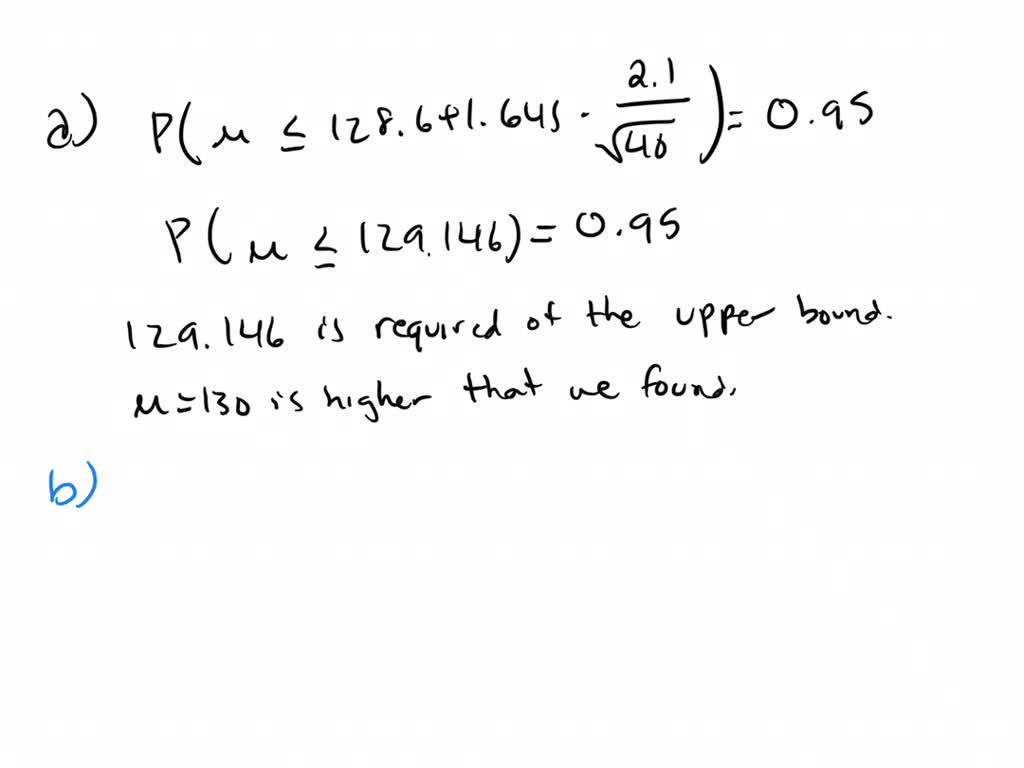 a) P( μ ≤ 128.6+1.645 · 2.1/√40 ) = 0.95
P( μ ≤ 129.146) = 0.95
129.146 is required of the upper bound.
μ=130 is higher that we found.
b)